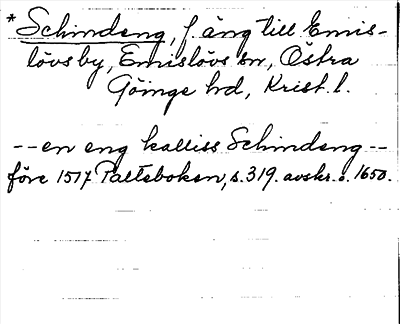 * Schindeng, f. äng till Emis-
lövs by, Emislövs sn, Östra
Göinge hd, Krist. l.
-- en eng kalliss Schindeng --
före 1517 Palteboken, s. 319. avskr. o. 1650.